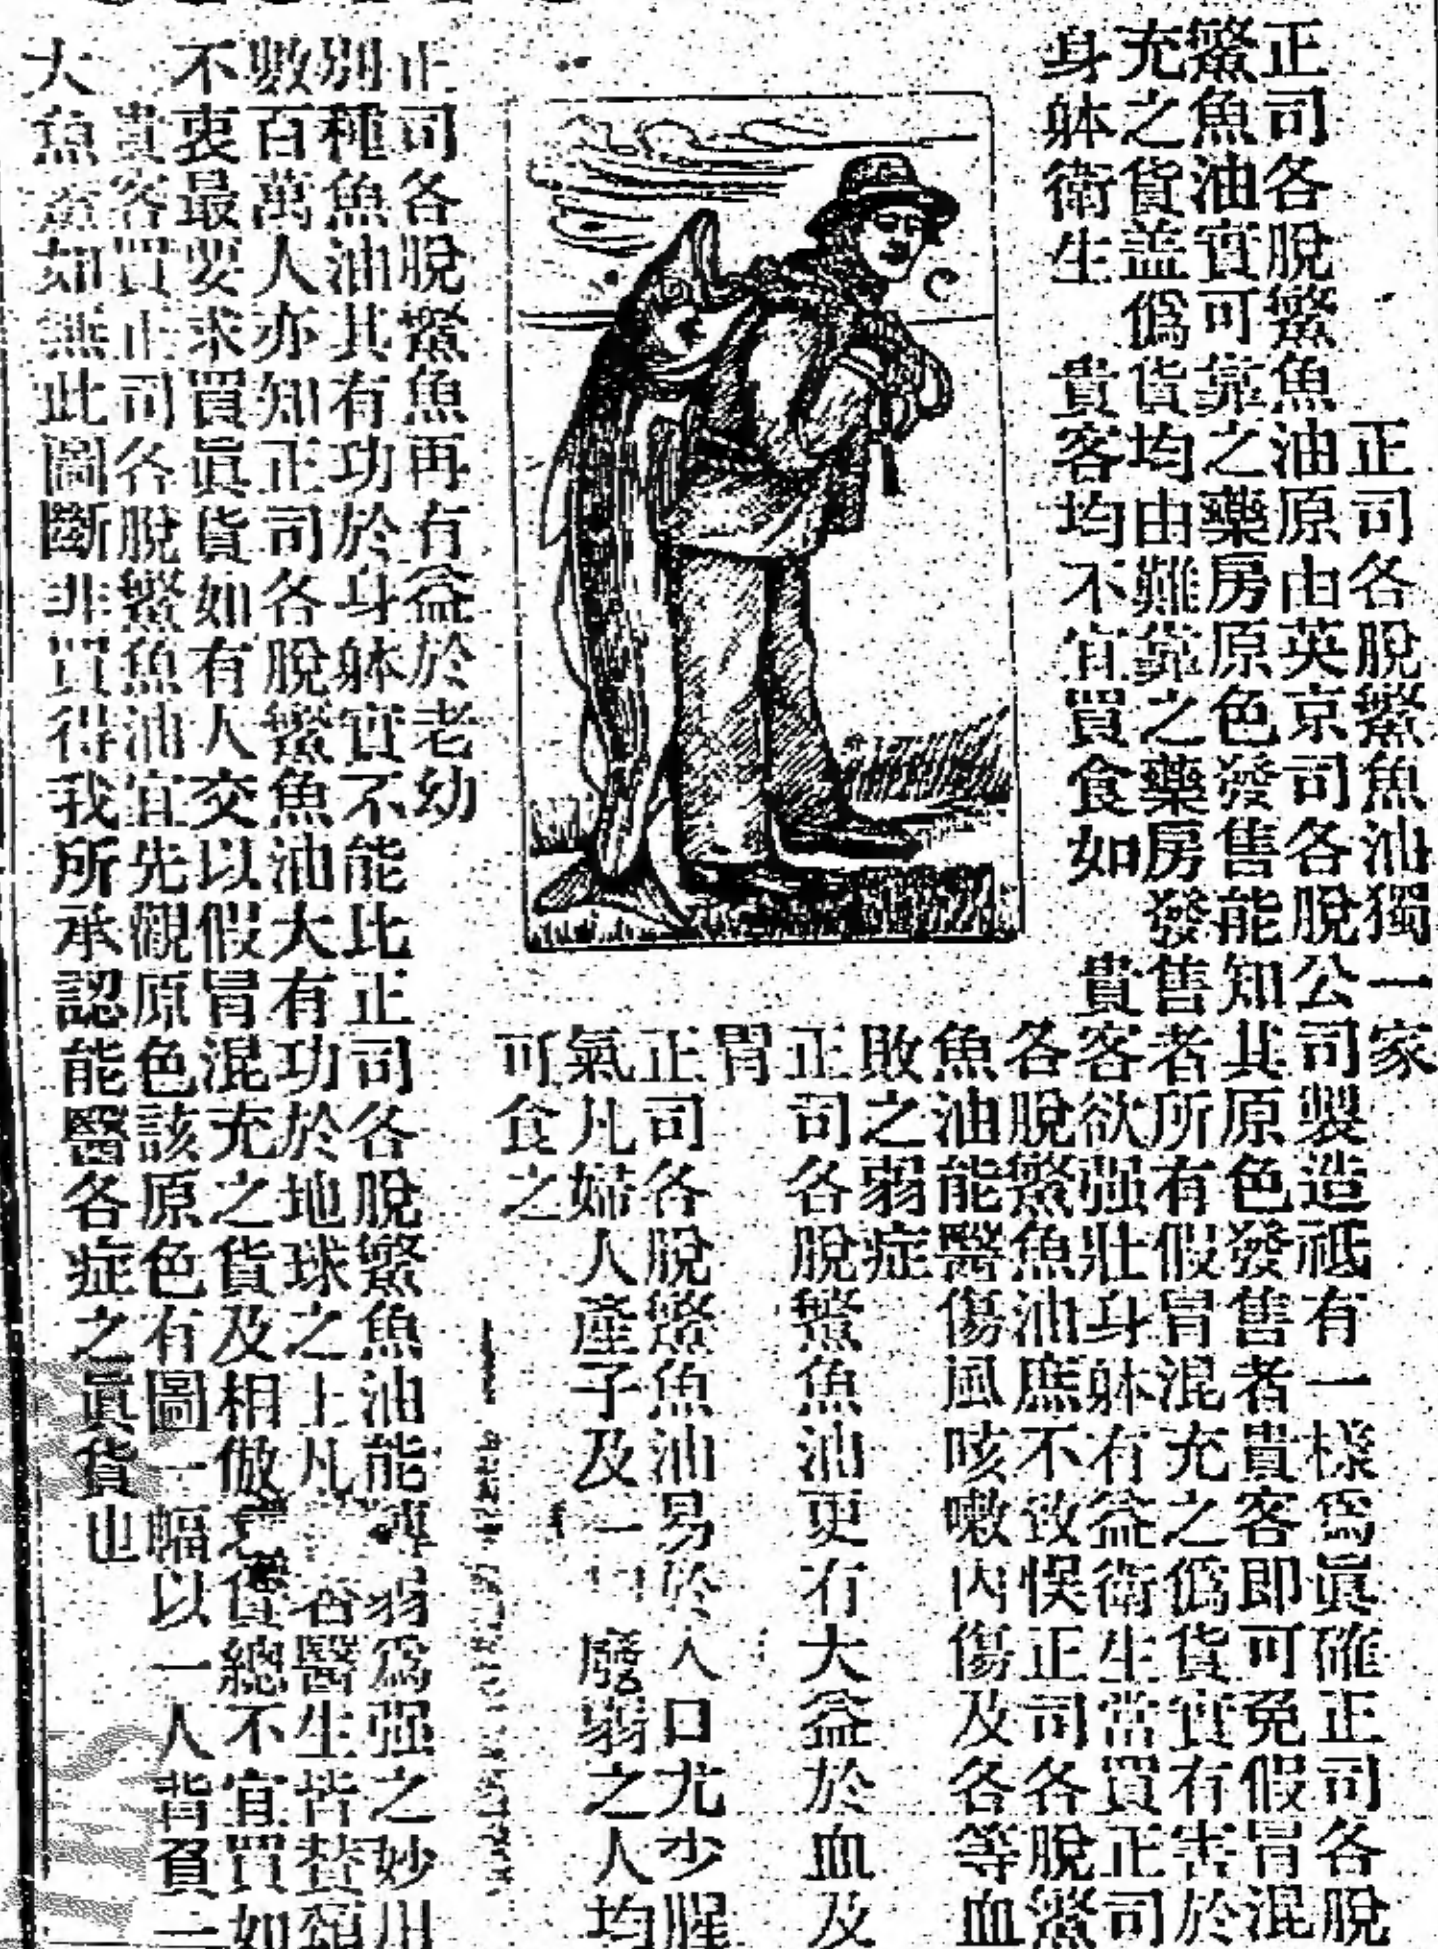 正司各脫鰵魚油獨一家
正司各脫鰵魚油原由英京司各脫公司製造祗有一樣爲眞確正司各脫
鰵魚油實可靠之藥房原色發售能知其原色發售者貴客即可免假冒混
充之貨盖僞貨均由難靠之藥房發售者所有假冒混充之僞貨實有害於
身躰衛生 貴客均不宜買食如 貴客欲强壯身躰有益衛生當買正司
各脫鰵魚油庶不致悞正司各脫鰵
魚油能醫傷風咳嗽內傷及各等血
敗之弱症
正司各脫鰵魚油更有大益於血及
胃
正司各脫鰵魚油易於入口尤少腥
氣凡婦人產子及一 廢弱之人均
可食之
正司各脫鰵魚再有益於老幼
別種魚油其有功於身躰實不能比正司各脫鰵魚油能 弱爲强之妙
數百萬人亦知正司各脫鰵魚油大有功於地球之上凡 各醫生皆賛頌
不衷最要求買眞貨如有人交以假冒混充之貨及相倣 貨總不宜買如
貴客買正司各脫鰵魚油宜先觀原色該原色有圖一幅以一人背負一
大魚 如無此圖斷非買得我所承認能醫各症之眞貨也